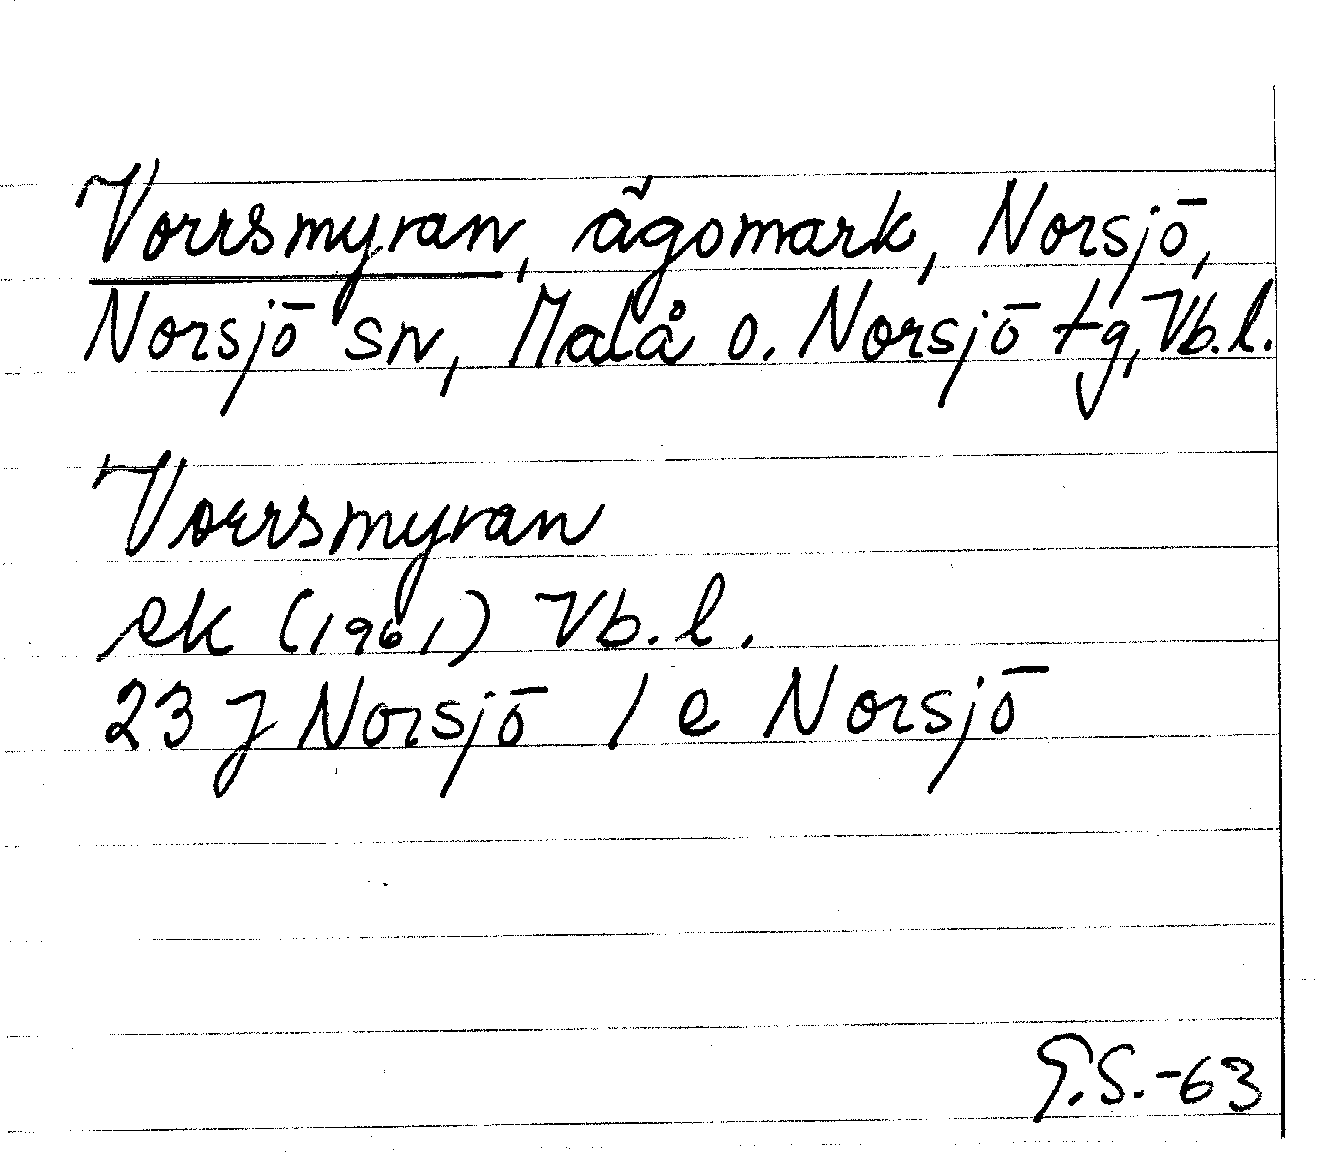 Vorrsmyran, ägomark, Norsjö,
Norsjö sn, Malå o. Norsjö tg, Vb.l.
Vorrsmyran
ek (1961) Vb.l.
23 J Norsjö 1 e Norsjö
G.S.-63